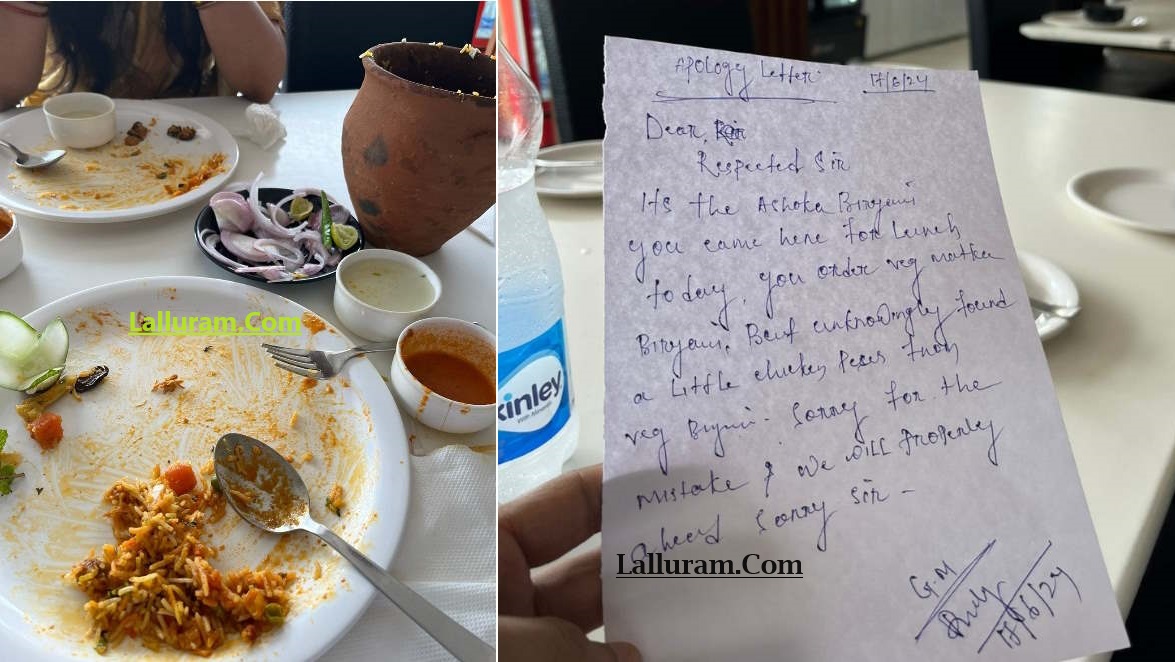 Lalluram.Com
kinley
Apology Letter 17/6/24
Dear,
Respected Sir
Its the Ashoka Biryani
you came here for Lunch
today, you order veg matka
Biryani. But unknowingly found
a Little chicken from
veg Sorry for the
mistake & we will properly
Sorry Sir -
Lalluram.Com
G.M
17/6/24